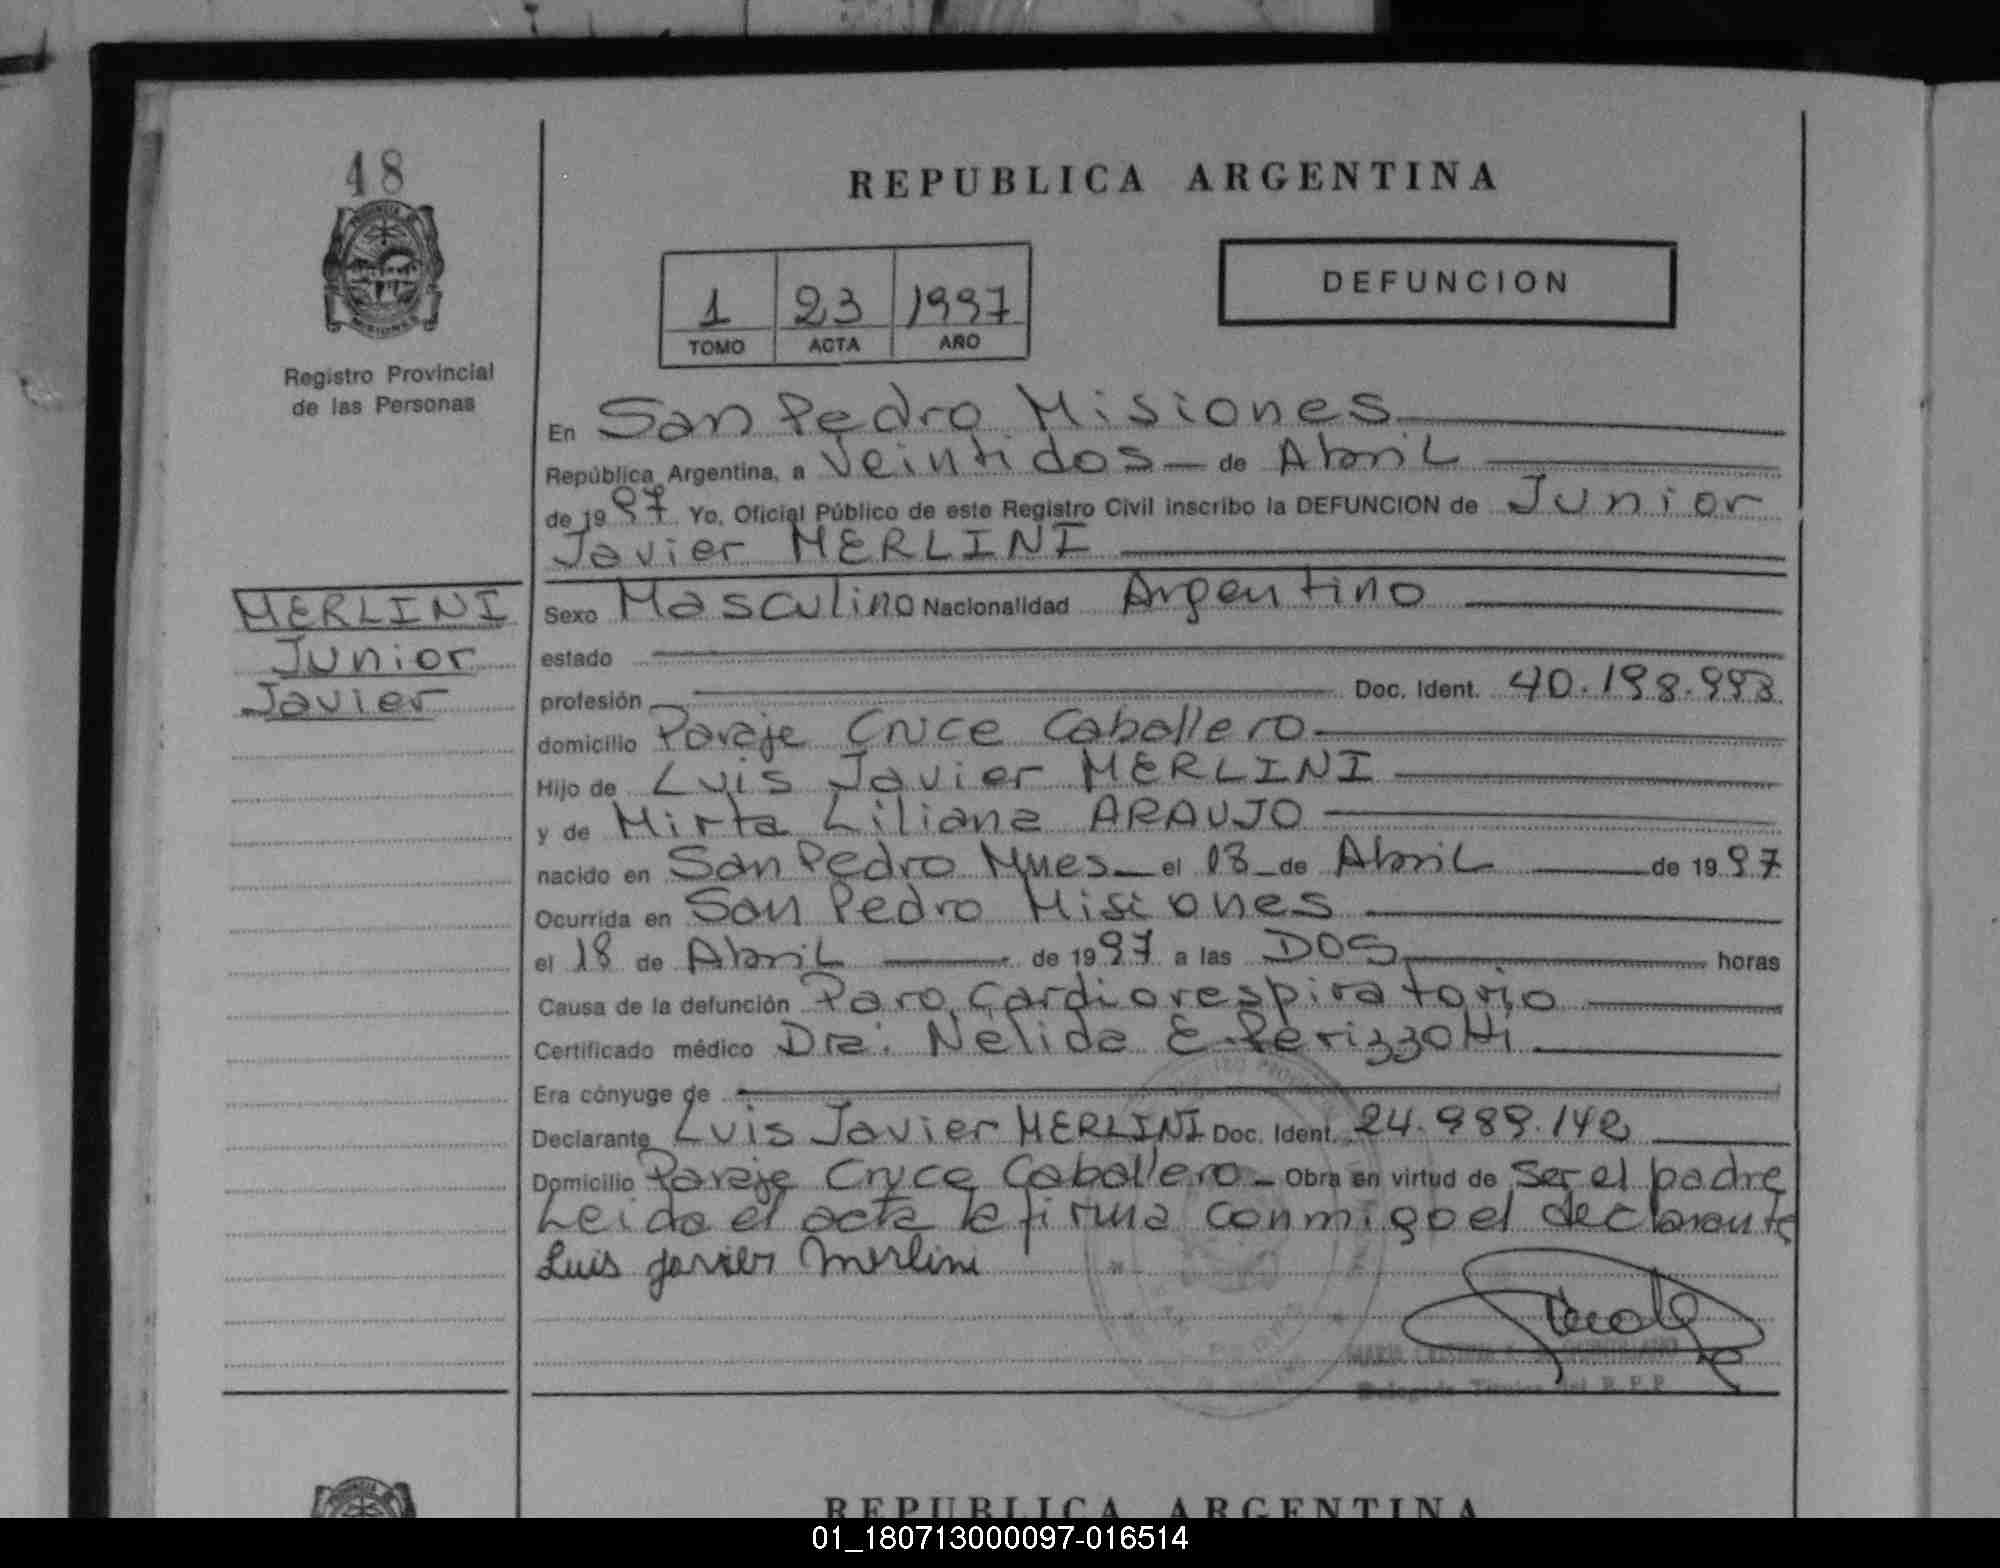 48
Registro Provincial
de las Personas
REPUBLICA ARGENTINA
1 23 1997
TOMO ACTA AÑO
DEFUNCION
En San Pedro Misiones
República Argentina, a Veintidos de Abril
de 1997 Yo, Oficial Público de este Registro Civil inscribo la DEFUNCION de Junior
Javier MERLINI
MERLINI
Junior
Javier
Sexo Masculino Nacionalidad Argentino
estado
profesión Doc. Ident. 40.198.993
domicilio Paraje Cruce Caballero
Hijo de Luis Javier MERLINI
y de Mirta Liliana ARAUJO
nacido en San Pedro Mnes el 18 de Abril de 1997
Ocurrida en San Pedro Misiones
el 18 de Abril de 1997 a las DOS horas
Causa de la defunción Paro Cardiorespiratorio
Certificado médico Dra. Nelida E. Perizzotti
Era cónyuge de
Declarante Luis Javier MERLINI Doc. Ident. 24.989.142
Domicilio Paraje Cruce Caballero Obra en virtud de Ser el padre
Leida el acta la firma conmigo el declarante
Luis javier Merlini
MARIA CRISTINA
Delegada Titular del R.P.P.
REPUBLICA ARGENTINA
01_180713000097-016514